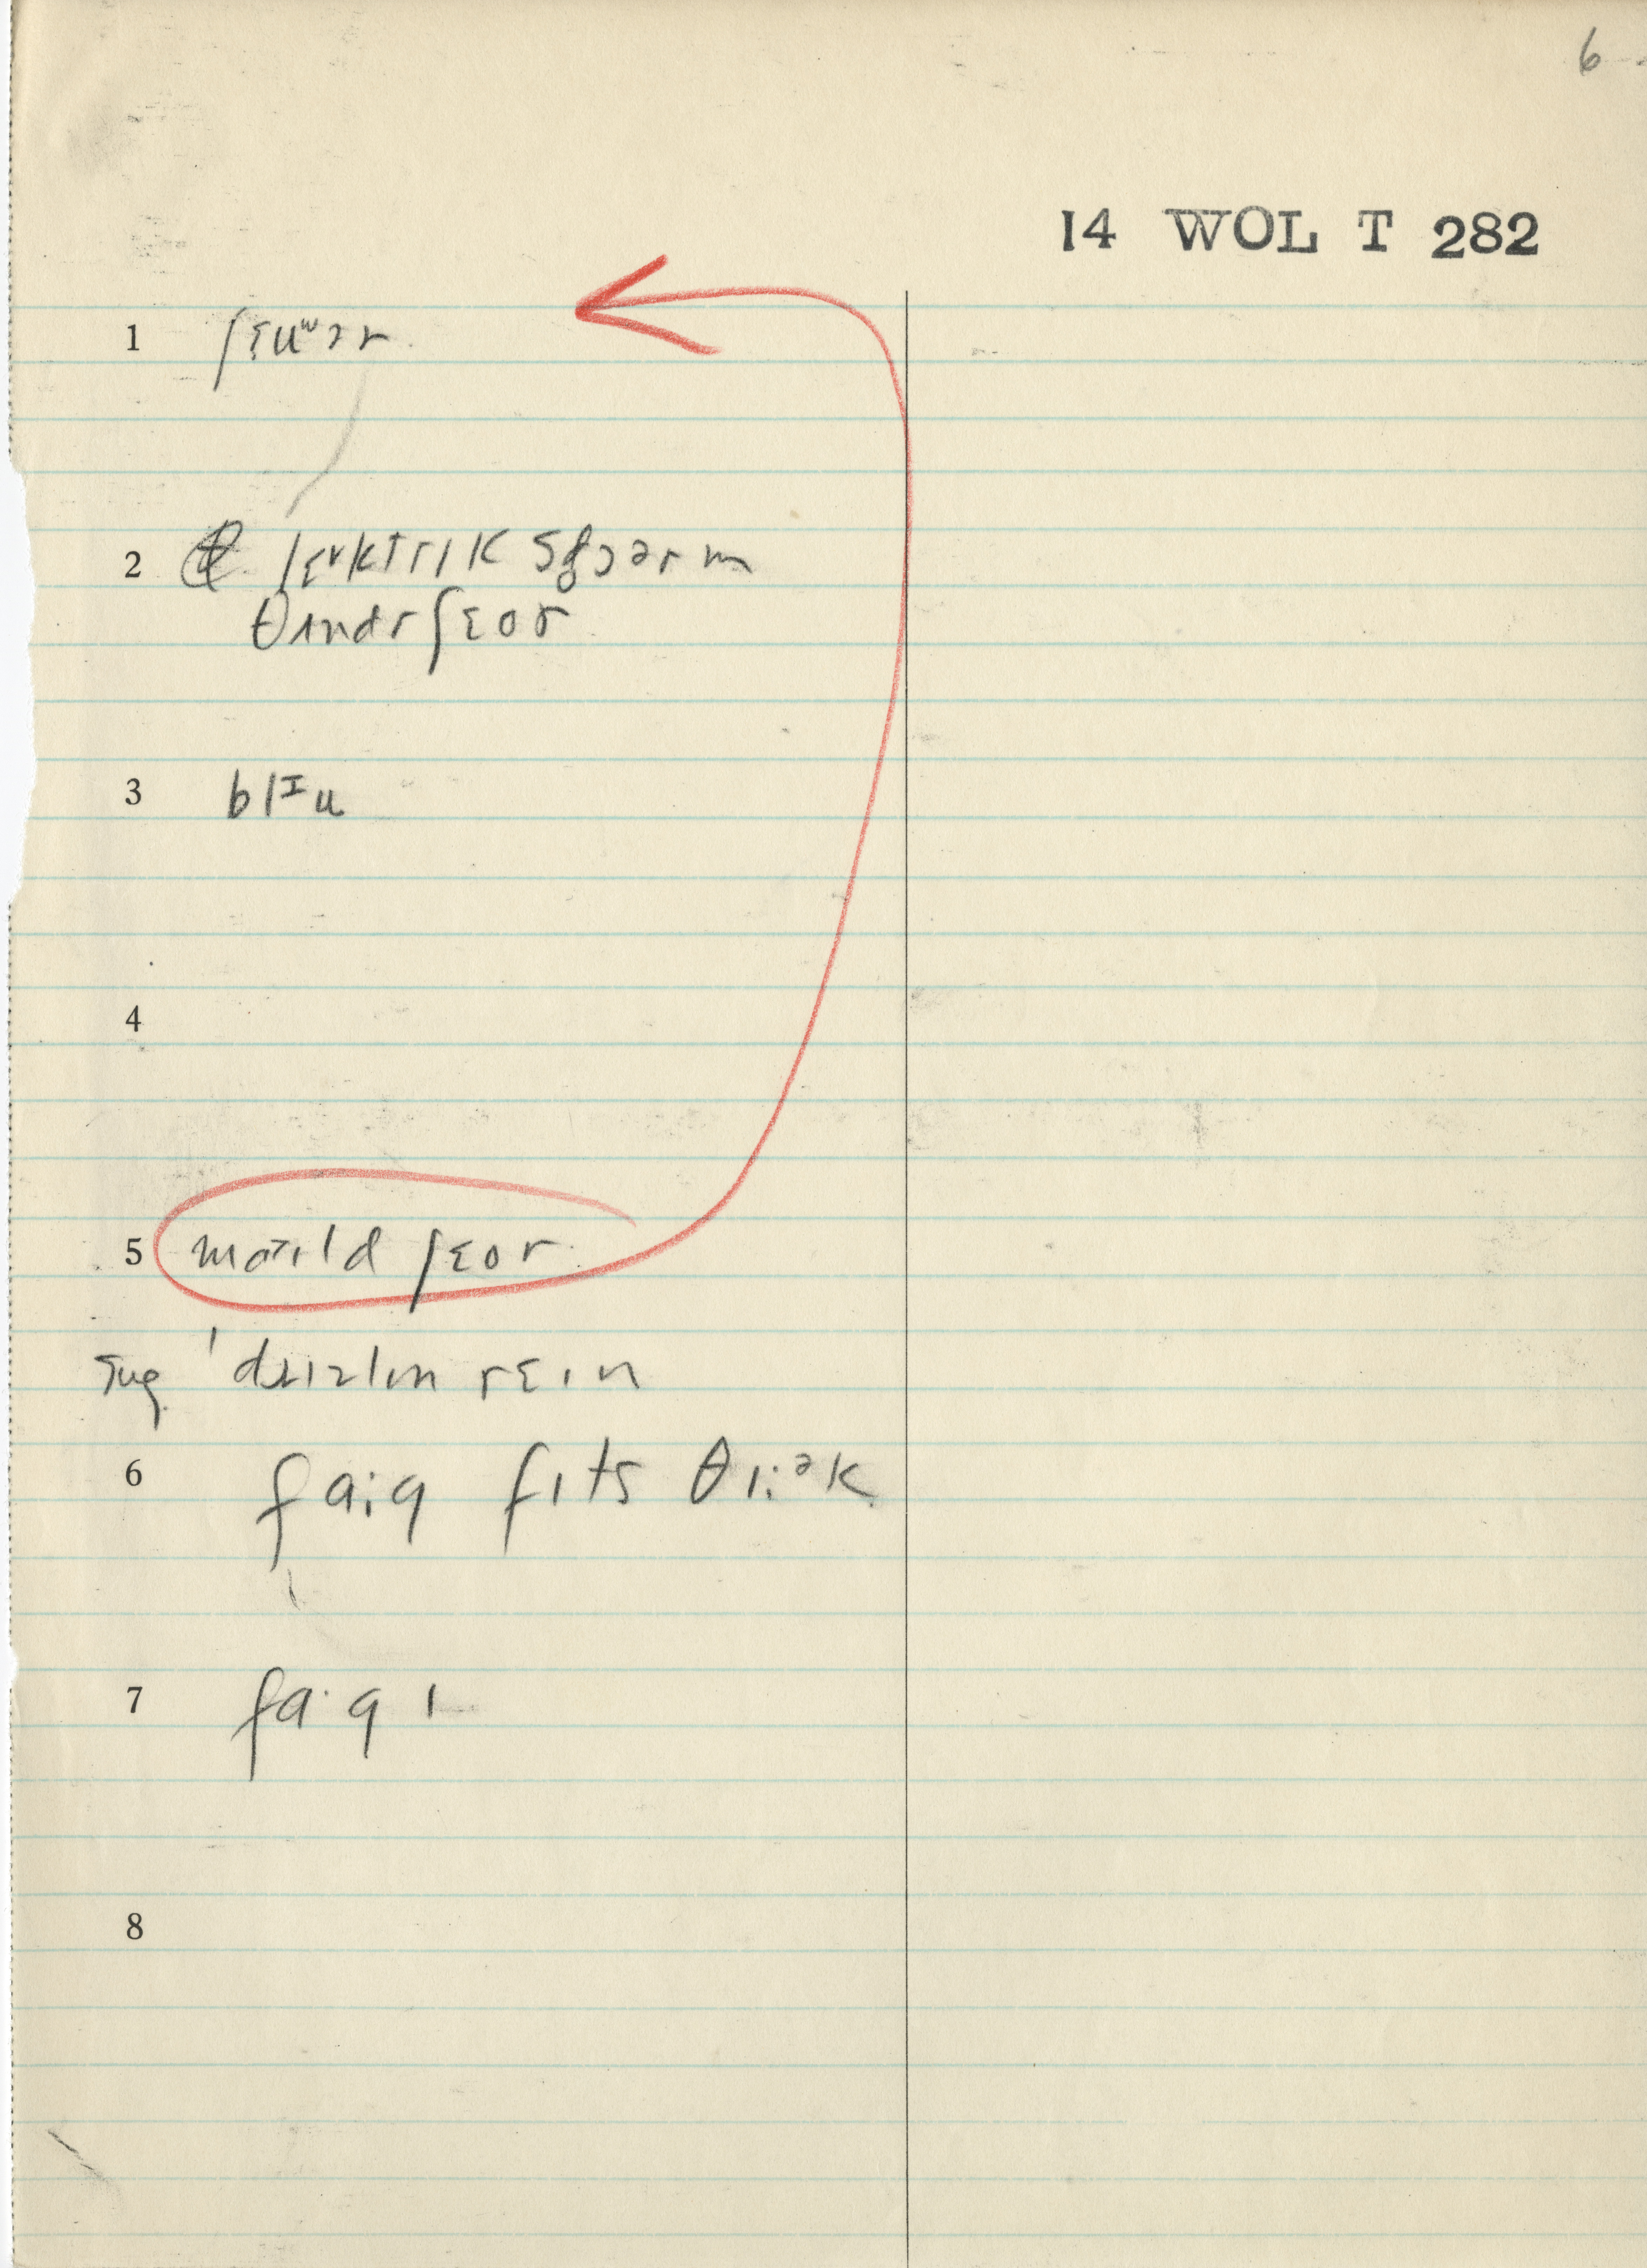 6
14 WOL T 282
1 ʃɛuʷɔr
2 lɛᵛktrɪk sʃɔərm
θʌndrʃɛor
3 blᴵu
4
5 maɪld ʃɛor
sug ˈdrɪzlɪn rɛɪn
6 fa:g fɪts θɪ:ᵊk
7 fa·gɪ
8